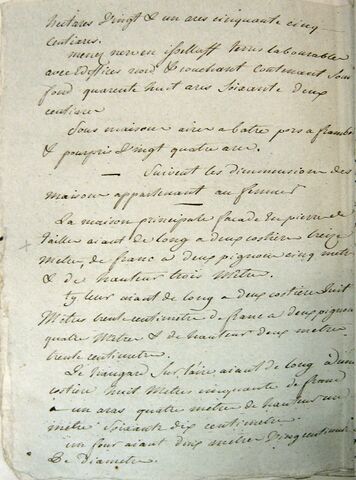 hectares vingt et un ares cinquante cinq
centiares.
menez nerven issellaff terres labourable
avec édiffices nord & couchant contenant sous
fond quarente huit ares soixante deux
centiare
Sous maison aire a batre pors a framboy
& pourpris vingt quatre are.
— Suivent les dimmension des
maison appartenant au fermier
La maison principale façade en pierre de
taille aiant de long a deux costière treize
metre, de franc a deux pignon cinq metre
& de hauteur trois mètre.
aiant de long a deux costière huit
Metres trente centimetre de franc a deux pignon
quatre Metre & de hauteur deux metre
trente centimetre.
Le hangard sur l'aire aiant de long a une
costière huit Metres cinquante de franc
a un aras quatre metre de hauteur un
metre soixante dix centimetre
un four aiant deux metre vingt centimetre
De Diametre